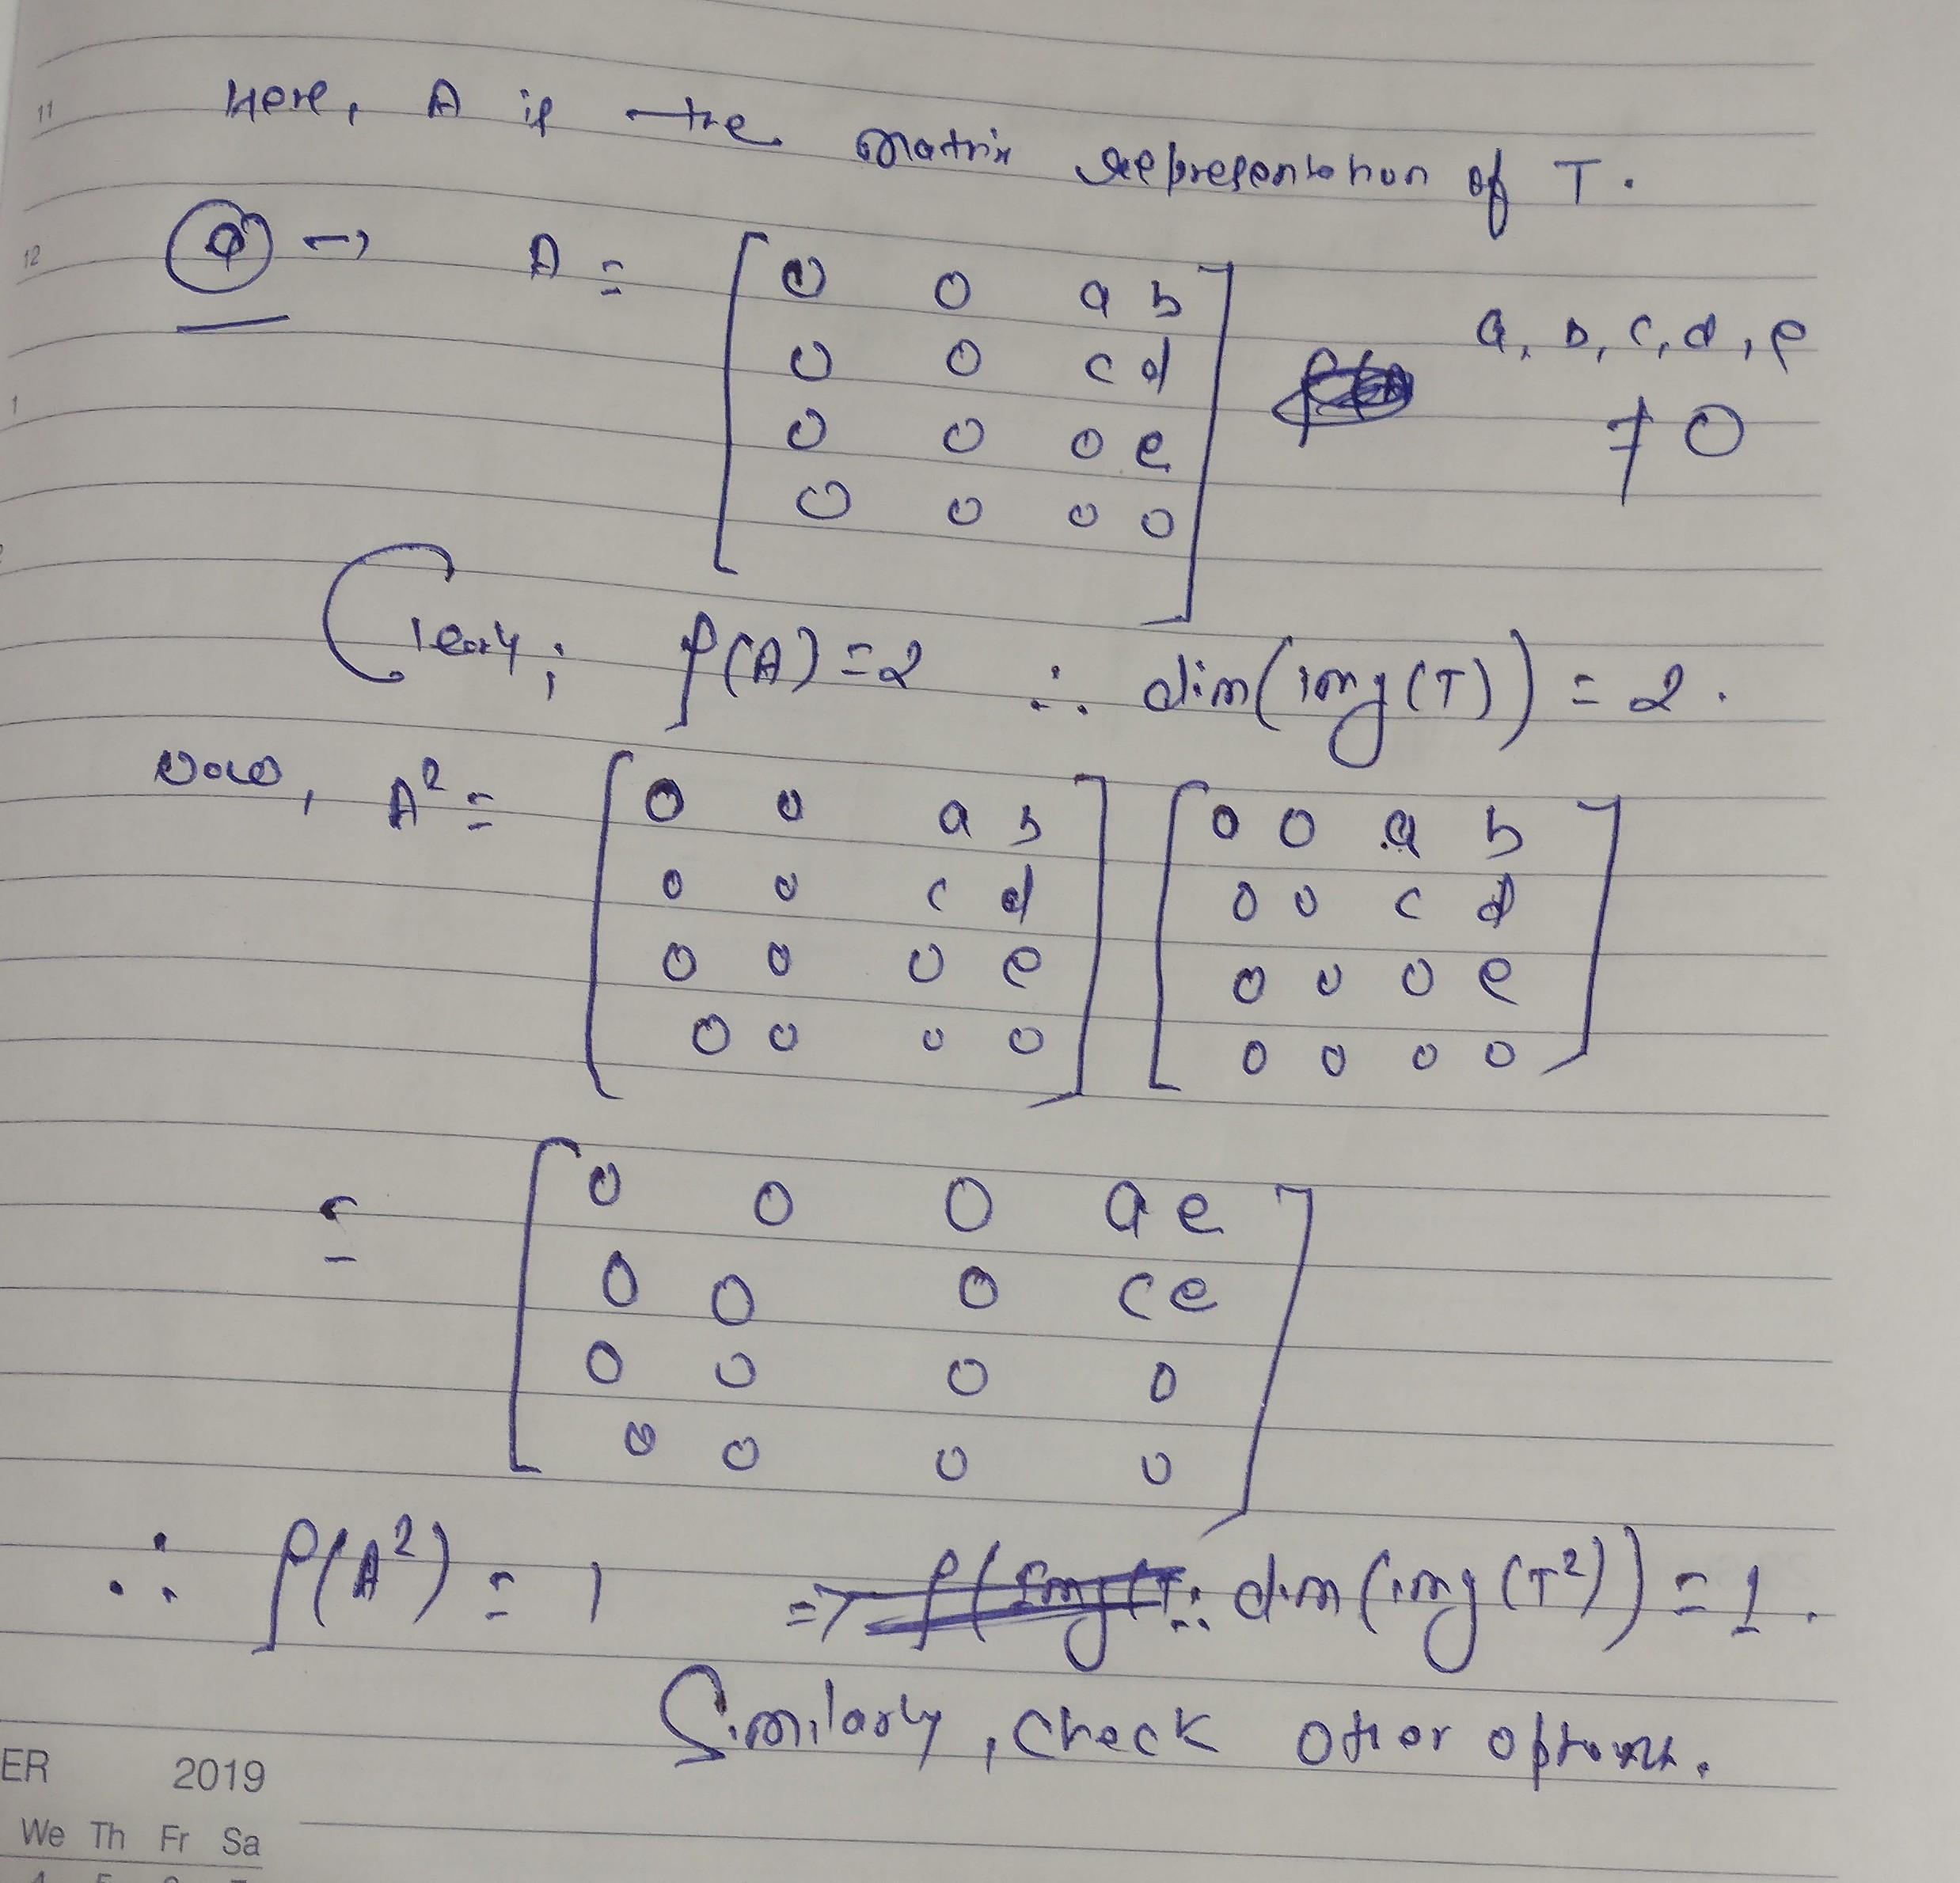 11
Here, A is the matrix representation of T.
12
A = [ 0 0 a b
0 0 c d
0 0 0 e
0 0 0 0 ]
a, b, c, d, e
≠ 0
1
Clearly; ρ(A) = 2 ∴ dim(img(T)) = 2.
Now, A² = [ 0 0 a b [ 0 0 a b
0 0 c d 0 0 c d
0 0 0 e 0 0 0 e
0 0 0 0 ] 0 0 0 0 ]
= [ 0 0 0 ae
0 0 0 ce
0 0 0 0
0 0 0 0 ]
∴ ρ(A²) = 1 => ∴ dim(img(T²)) = 1.
Similarly, check other options.
ER 2019
We Th Fr Sa